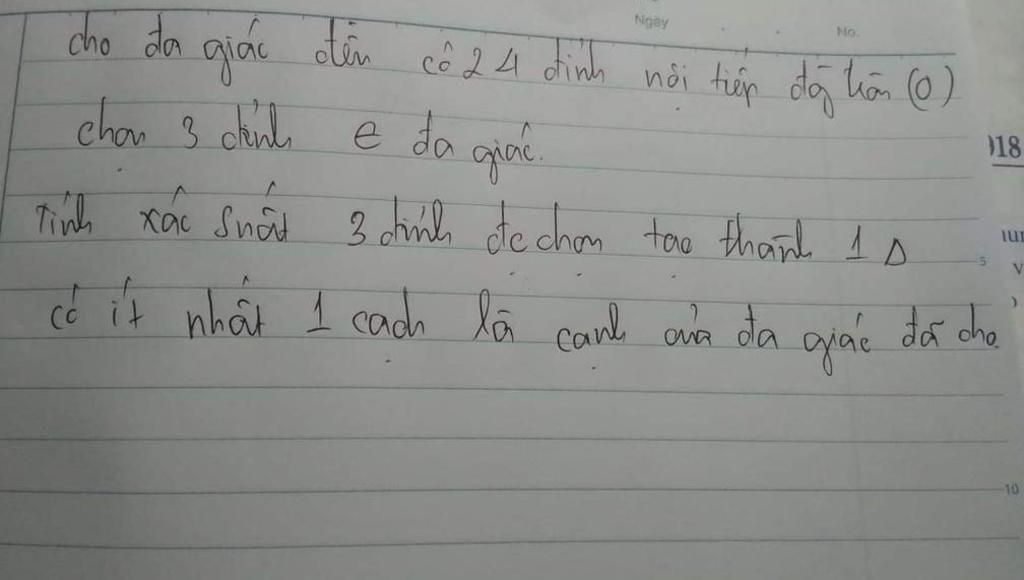 Ngày No.
cho đa giác đều có 24 đỉnh nội tiếp đg tròn (O)
chọn 3 đỉnh e đa giác.
Tính xác suất 3 đỉnh đc chọn tạo thành 1 Δ
có ít nhất 1 cạch là cạnh của đa giác đã cho
)18
5
10